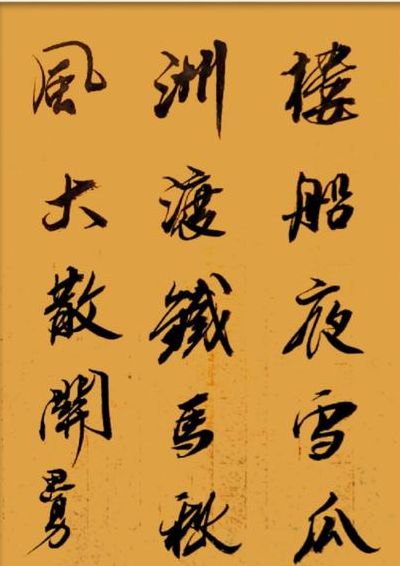 樓船夜雪瓜
洲渡鐵馬秋
風大散關